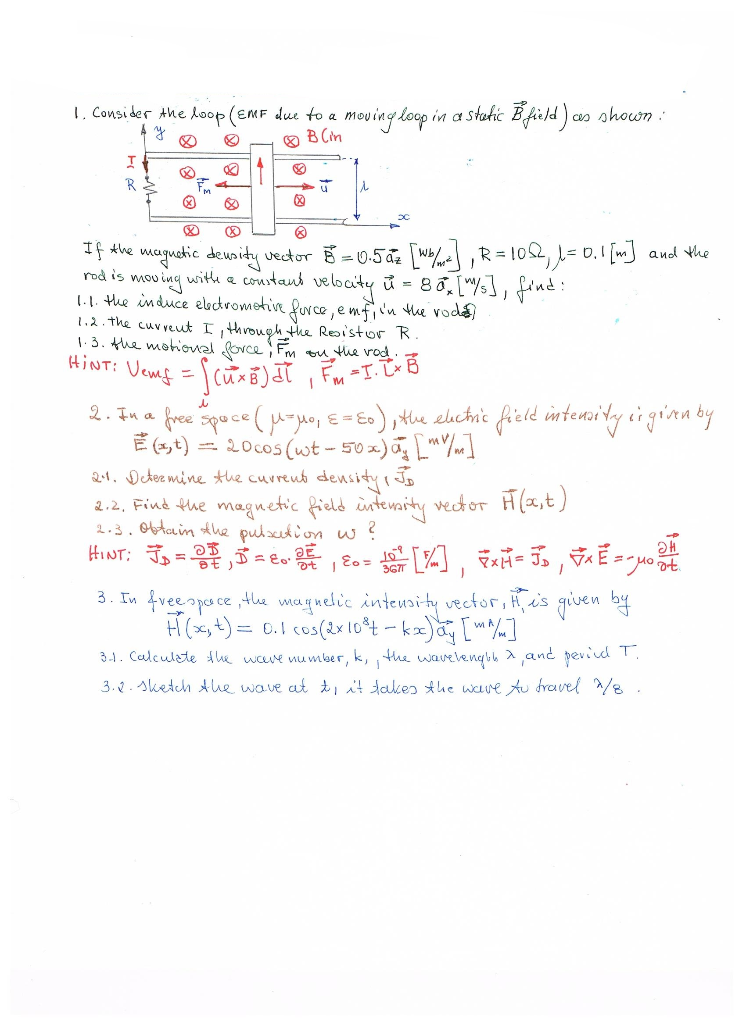 1. Consider the loop (EMF due to a moving loop in a static B⃗ field) as shown :
y
⊗ ⊗ ⊗ B (in
I
R
⊗ ⊗ ⊗
F⃗m u⃗ l
⊗ ⊗ ⊗
x
⊗ ⊗ ⊗
If the magnetic density vector B⃗ = 0.5 a⃗z [Wb/m²], R = 10Ω, l = 0.1 [m] and the
rod is moving with a constant velocity u⃗ = 8 a⃗x [m/s], find :
1.1. the induce electromotive force, emf, in the rod
1.2. the current I, through the Resistor R.
1.3. the motional force, F⃗m on the rod.
HINT: Vemf = ∫l (u⃗ × B⃗) dl⃗ , F⃗m = I. L⃗ × B⃗
2. In a free space ( μ=μ0, ε=ε0), the electric field intensity is given by
E⃗ (x,t) = 20 cos(wt − 50x) a⃗y [mV/m]
2.1. Determine the current density, J⃗D
2.2. Find the magnetic field intensity vector H⃗(x,t)
2.3. Obtain the pulsation w ?
HINT: J⃗D = ∂D⃗/∂t , D⃗ = ε0. ∂E⃗/∂t , ε0 = 10⁻⁹/36π [F/m] , ∇⃗×H⃗ = J⃗D , ∇⃗×E⃗ = −μ0 ∂H⃗/∂t.
3. In free space, the magnetic intensity vector, H⃗, is given by
H⃗(x,t) = 0.1 cos(2×10⁸t − kx) a⃗y [mA/m]
3.1. Calculate the wave number, k, , the wavelength λ, and period T.
3.2. Sketch the wave at t1 it takes the wave to travel λ/8 .